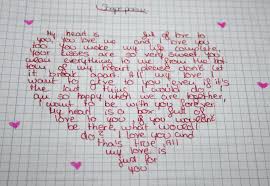 My heart is full of love to
you. You love me and I love you
too. You make my life complete
Your kisses are so very sweet You
mean everything to me from the bot
tom of my heart please don't let
it break apart All my love I
want to give to you even if it's
the last thing I would do I
am so happy when we are together,
I want to be with you forever,
My heart is a poor full of
love to you if you wouldn't
be there, what would I
do? I love you and
thats true, all
my love is
just for
you